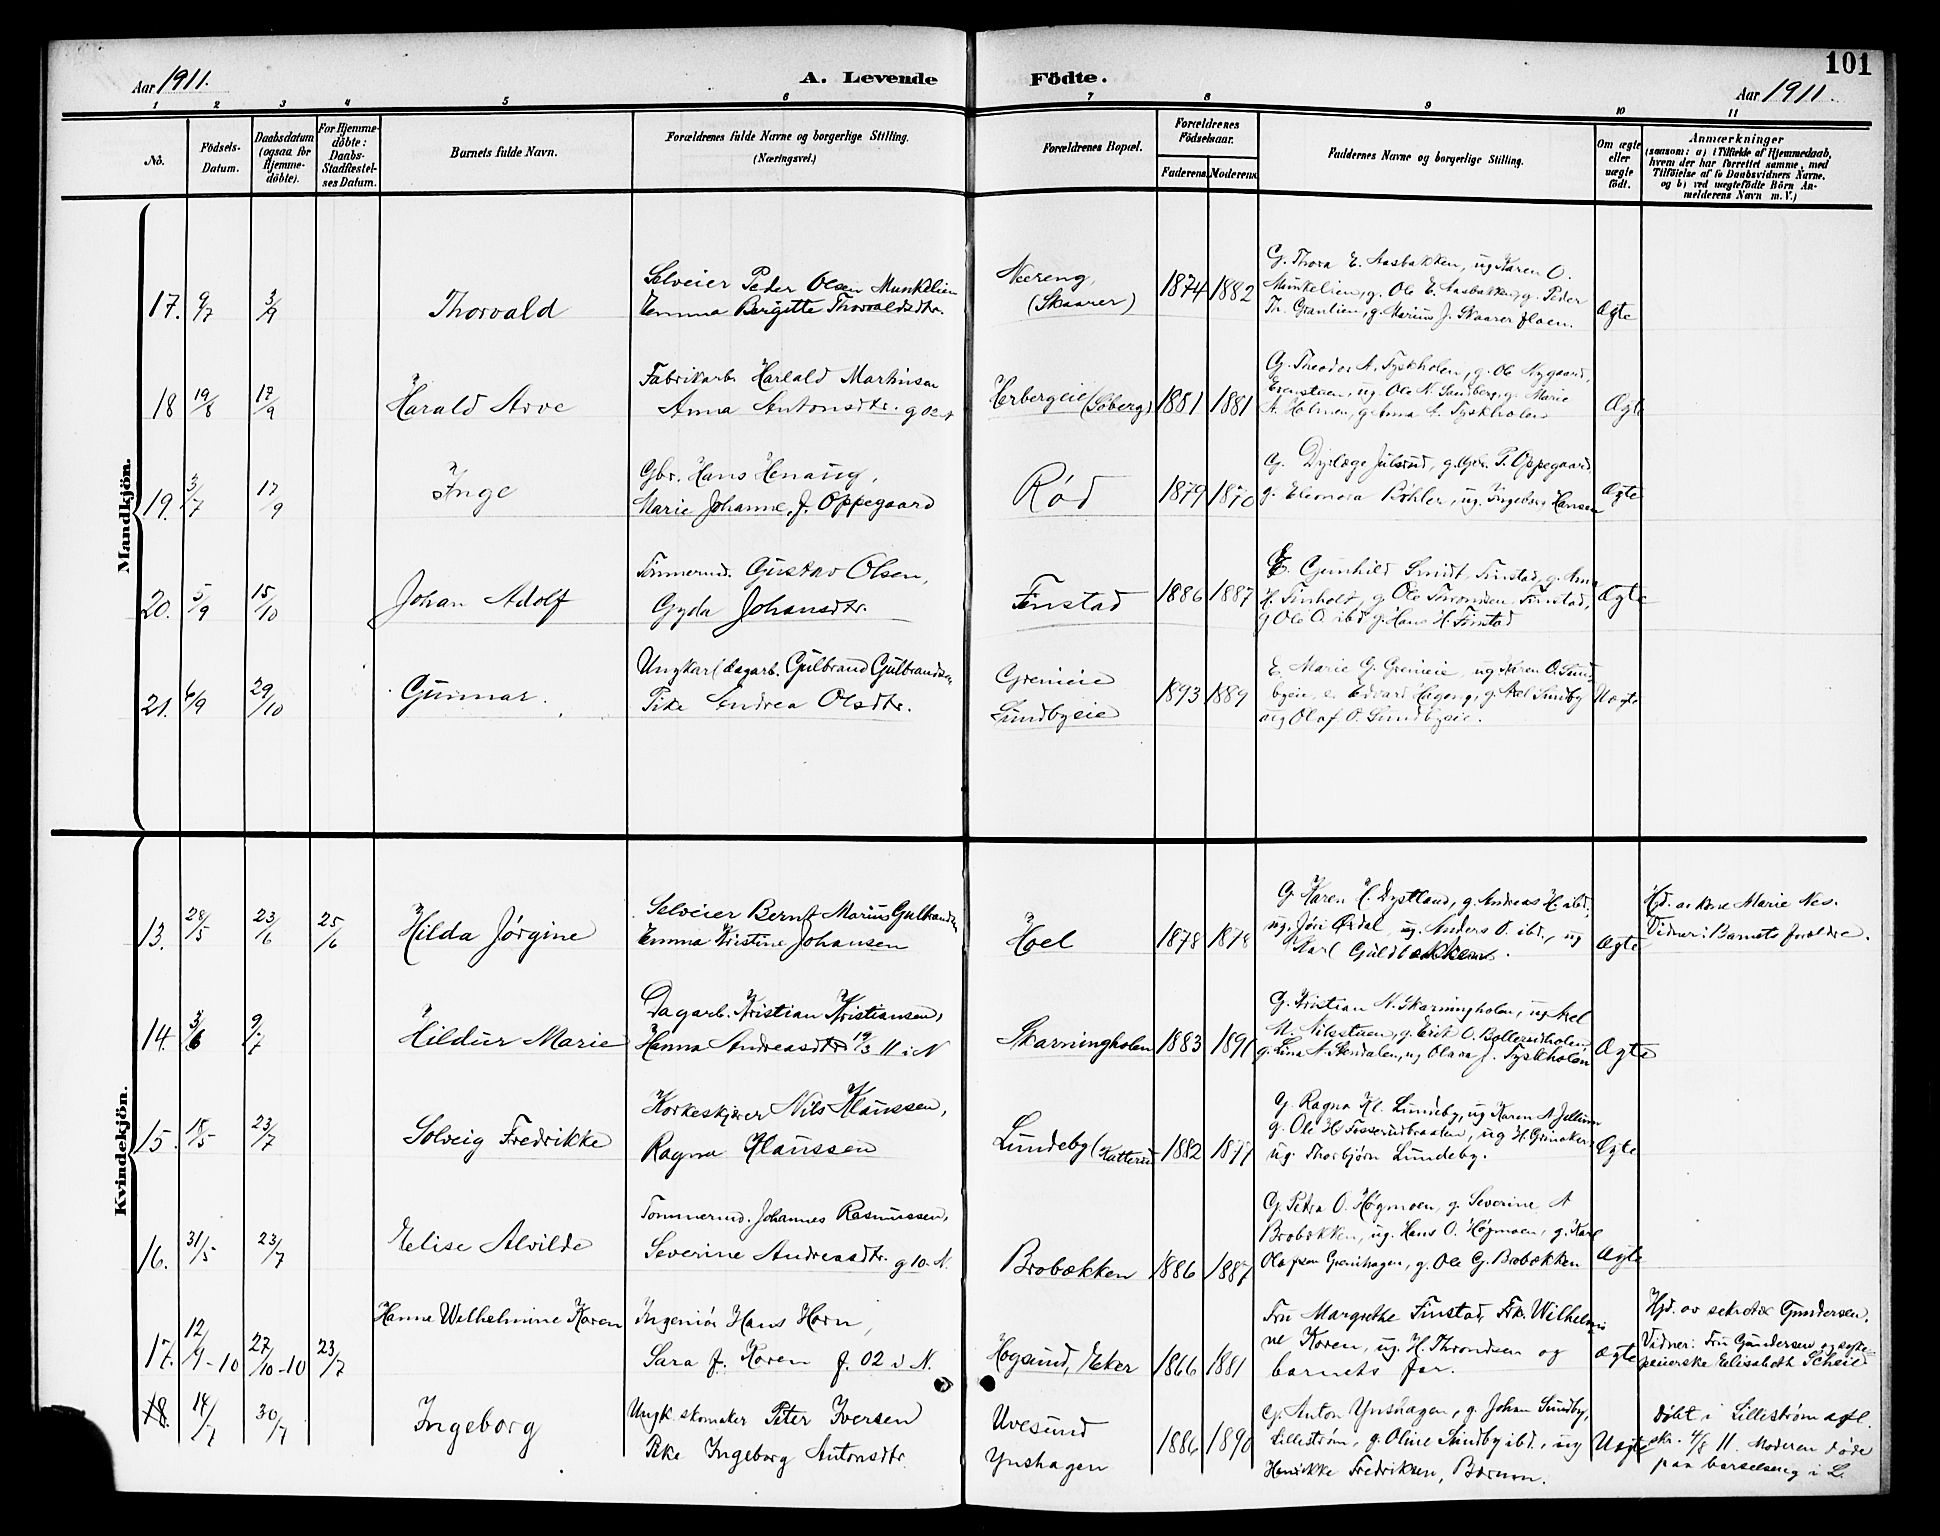 101
Aar 1911.
A. Levende Födte.
Aar 1911.
1 2 3 4 5 6 7 8 9 10 11
No.
Födsels-Datum.
Daabsdatum (ogsaa for Hjemme-döbte).
For Hjemme-döbte: Daabs-Stadfestel-ses Datum.
Barnets fulde Navn.
Forældrenes fulde Navne og borgerlige Stilling. (Næringsvei.)
Forældrenes Bopæl.
Forældrenes Födselsaar.
Faderens. Moderens.
Faddernes Navne og borgerlige Stilling.
Om ægte eller uægte födt.
Anmærkninger
(saasom: a) i Tilfælde af Hjemmedaab,
hvem der har forrettet samme, med
Tilföielse af to Daabsvidners Navne.
og b) ved uægtefödte Börn An-
melderens Navn m. V.)
Mandkjön.
17. 9/7 3/9 Thorvald
Selveier Peder Olsen Munkelien
Emma Birgitte Thorvaldsdtr.
(Skaarer)
1874 1882
G. Thora E. Aasbakken, ug Karen O.
Munkelien, g. Ole E. Aasbakken, g. Peder
Tr. Granlien, g. Marius J. Skaarer
Ægte
18 19/8 17/9 Harald Arve
Fabrikarb. Harald Martinsen
Anna Antonsdtr.
Herbergeie (Soberg)
1881 1881
G. Theodor A. Tyskholen, g. Ole Nygaard,
ug Ole N. Sandberg, g. Marie
A. Holmen, g. Anna A. Tyskholen
Ægte
19. 3/7 17/9 Inge
Gbr. Hans Henaug,
Marie Johanne, f. Oppegaard
Rød
1879 1870
G. Dyrlæge Julsrud, g. Gbr. P. Oppegaard
g. Eleonora Böhler, ug. Ingeborg Hansen
Ægte
20. 5/9 15/10 Johan Adolf
Tömmermd. Gustav Olsen,
Gyda Johansdtr.
Finstad
1886 1887
E. Gunhild Smidt, Finstad, g. Ama
g Ole Throndsen Finstad,
g Ole O. ibd, g. Hans H. Finstad
Ægte
21. 4/9 29/10 Gunnar.
Ungkar (dagarb. Gulbrand Gulbrandsen
Pike Andrea Olsdtr.
Grenieie
Sundbyeie
1893 1889
E. Marie G. Grenieie, ug Karen O. Sund
byeie, e. Edvard g. Axel Sundby
ug Olaf O. Sundbyeie.
Uægte
Kvindekjön.
13. 28/5 23/6 25/6 Hilda Jørgine
Selveier Bernt Marius Gulbrandsen
Emma Kristine Johansen
Hoel
1878 1878
G. Karen H. Dystland, g. Andreas H. ibd,
ug. Jöri Ørdal, ug. Anders O. ibd., ug
Karl Guldbakken.
Ægte
Hjd. av Marie Nes.
Vidner: Barnets foreldre.
14. 3/6 9/7 Hildur Marie
Dagarb. Kristian Kristiansen,
Hanna Andreasdtr 19/3 11 i N
Skarningholen
1883 1891
G. Kristian N. Skarningholen, ug Axel
M. Nilsstuen, g. Erik O. Bollerudholen
g. Lina A. Stendalen, ug Olava J. Tyskholen
Ægte
15. 18/5 23/7 Solveig Fredrikke
Korkeskjærer Nils Klaussen,
Ragna Klaussen
Lundeby (Katterud
1882 1877
G. Ragna Kl. Lundeby, ug Karen A. Jellum
g. Ole H. Fosserudbraaten, ug H. Grinaker
ug. Thorbjørn Lundeby.
Ægte
16. 31/5 23/7 Elise Alvilde
Tömmermd. Johannes Rasmussen,
Severine Andreasdtr. g 10. N.
Brobækken
1886 1887
G. Petra O. Høgmoen, g. Severine A
Brobækken, ug. Hans O. Høgmoen, g. Karl
Olafsen Grenihagen, g. Ole G. Brobækken
Ægte
17. 12/9-10 27/10-10 23/7 Hanna Welhelmine Koren
Ingeniör Hans Horn,
Sara f. Koren f. 02 i N.
Hogsund, Eker
1866 1881
Fru Margrethe Finstad, Frk. Wilhelmi
ne Koren, ug. H. Throndsen og
barnets far.
ægte
Hjd. av Gundersen.
Vidner: Fru Gundersen og syke-
peierske Elisabeth Scheie
18. 14/7 30/7 Ingeborg
Ungk. skomaker Peter Iversen
Pike Ingeborg Antonsdtr
Uvesund
Ynshagen
1886 1890
G. Anton Ynshagen, g. Johan Sundby,
Lilleström, g. Oline Sundby ibd., ug
Henrikke Fredriksen, Bærum.
Uægte
døbt i Lilleström
skr. 4/8 11. Moderen døde
paa barselseng i L.